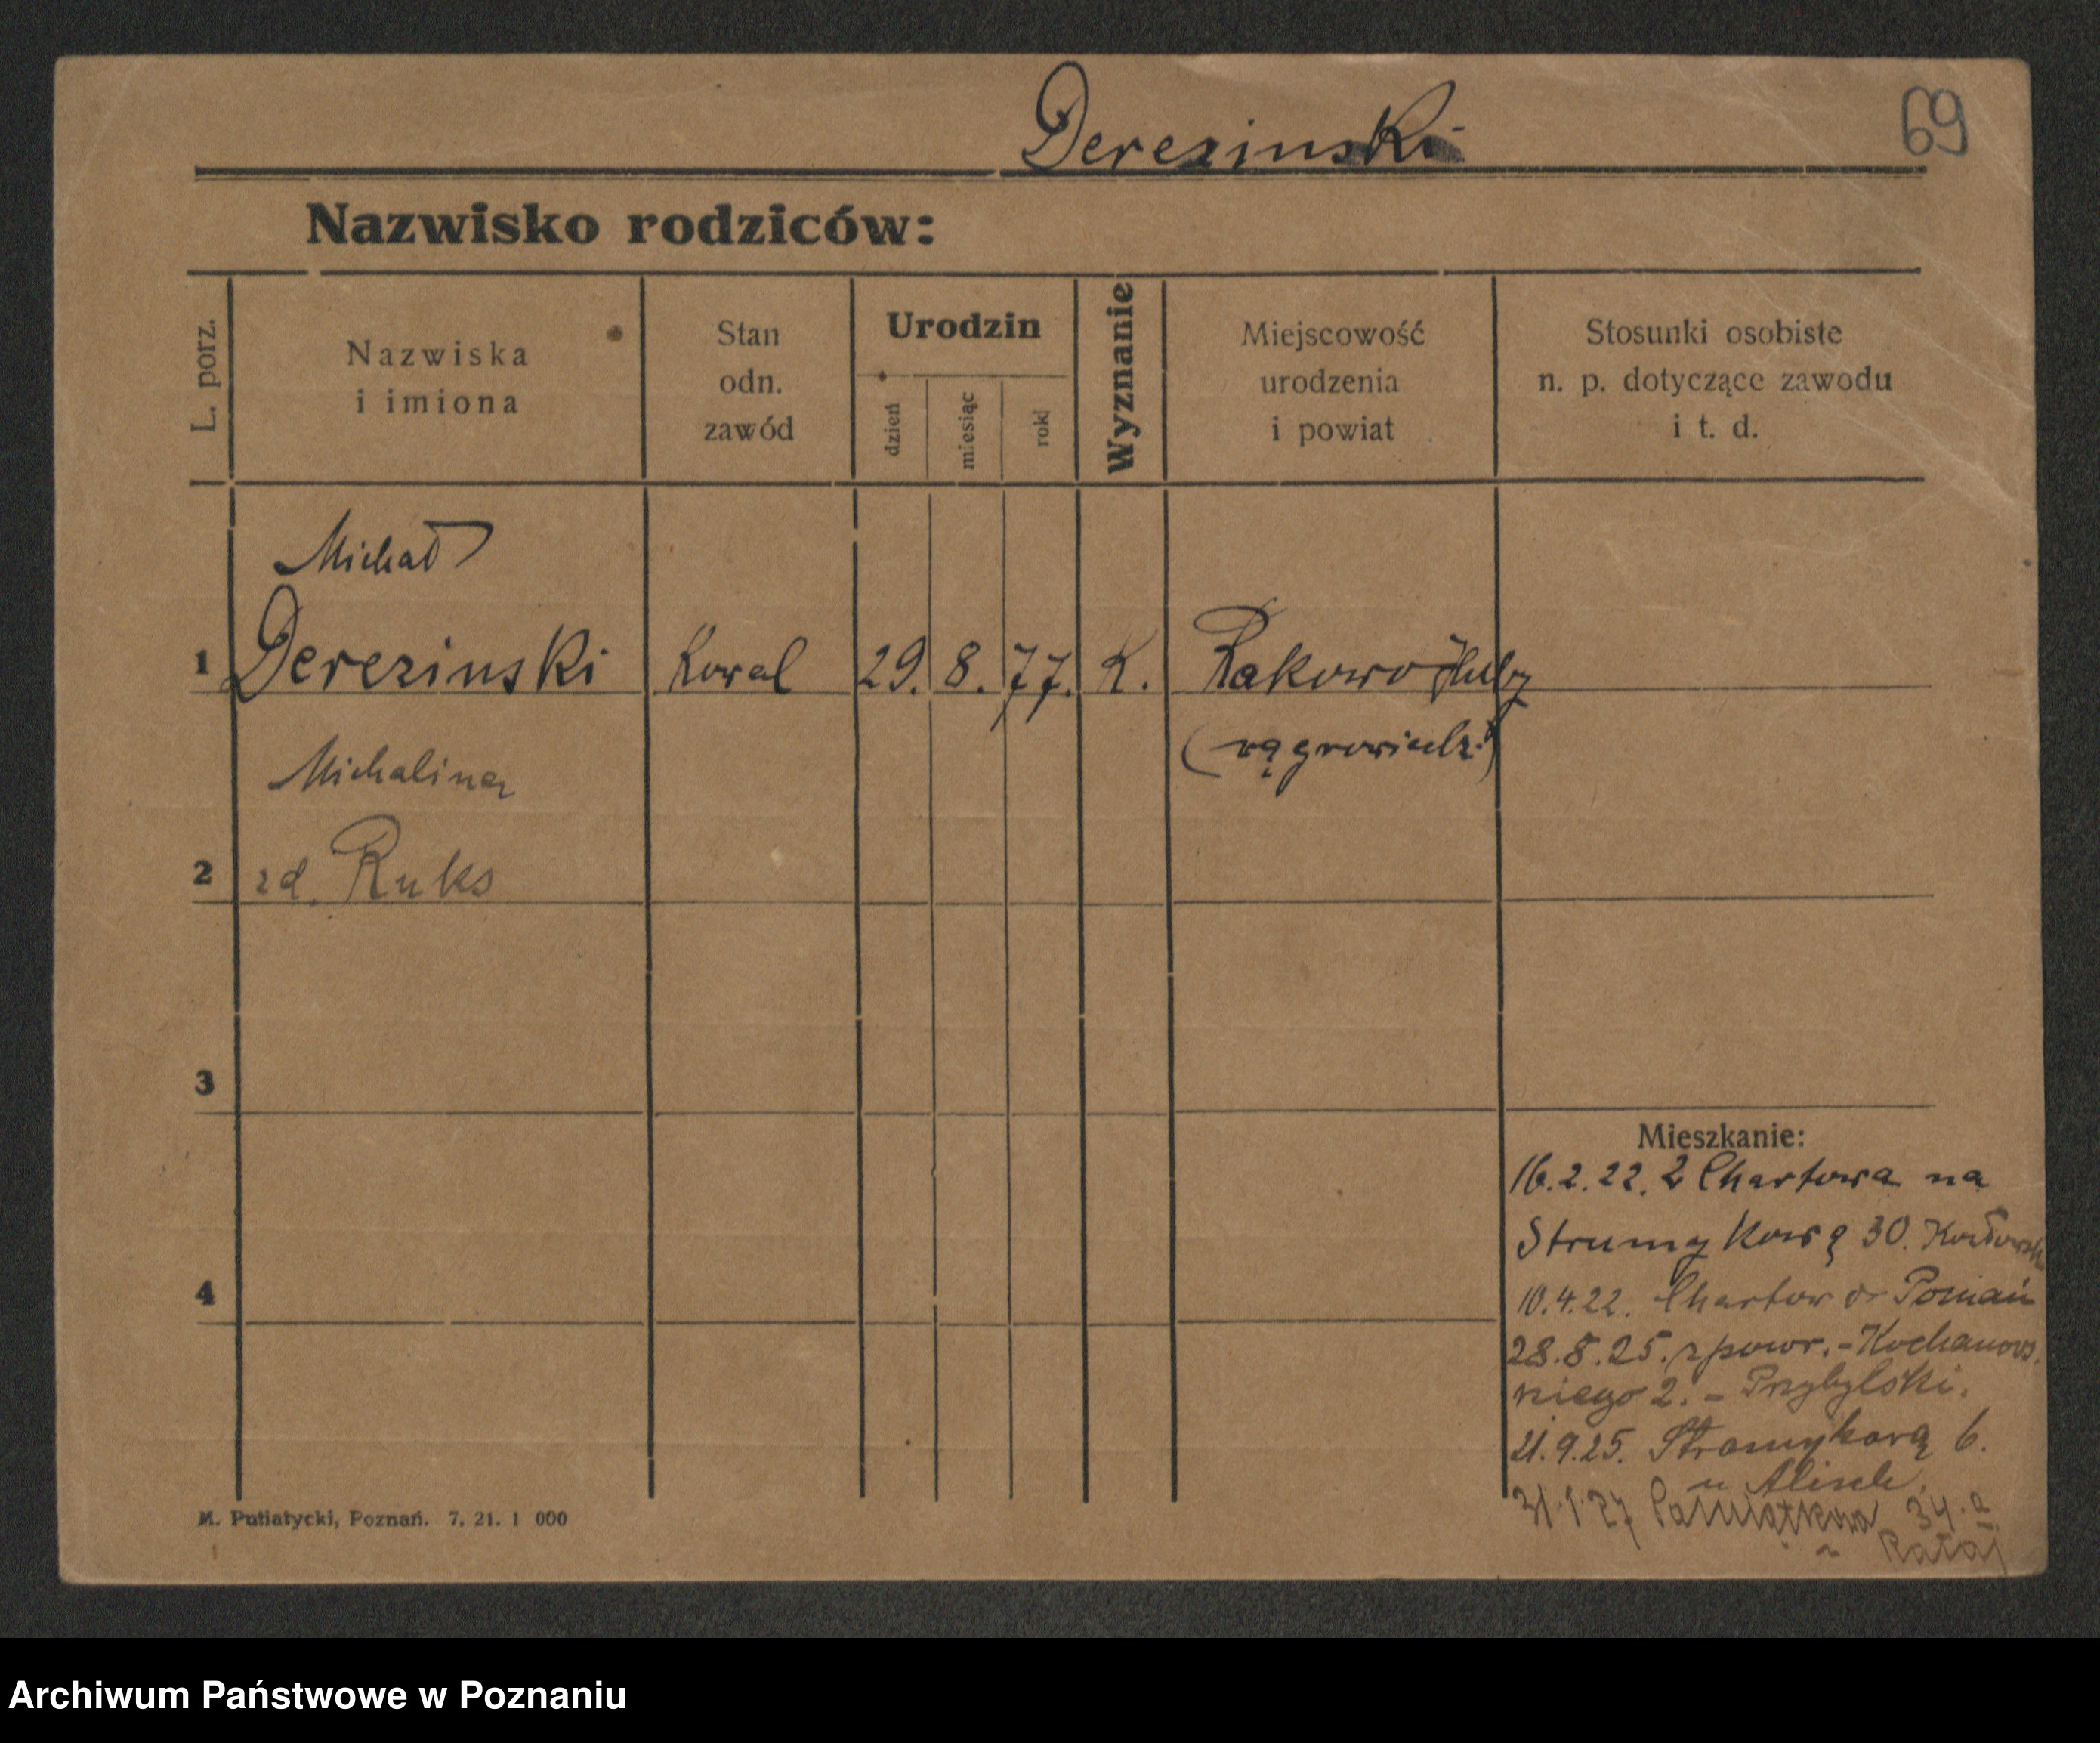 Derezinski
69
Nazwisko rodziców:
L. porz.
Nazwiska
i imiona
Stan
odn.
zawód
Urodzin
dzień
miesiąc
rok
Wyznanie
Miejscowość
urodzenia
i powiat
Stosunki osobiste
n. p. dotyczące zawodu
i t. d.
Michał
1 Derezinski Kowal 29. 8. 77. K. Rakowo
Michalina
2 zd. Ruks
3
4
Mieszkanie:
16.2.22. z Chartowa na
Strumykową 30.
10.4.22. Chartow
28.8.25. z powr. - Kochanows
kiego 2. - Przybylski.
21.9.25. Strumykową 6.
31.1.27 Pamiątkowa 34.a
Rataj
M. Putiatycki, Poznań. 7. 21. 1 000
Archiwum Państwowe w Poznaniu